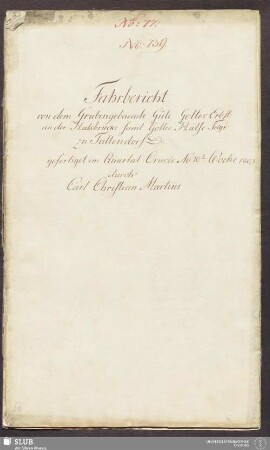 No: 77.
No: 739
Fahrbericht
von dem Grubengebäude Güte Gottes Erbst.
an der Halsbrücke samt Gottes Hülfe Fdgr.
zu Tuttendorf
gefertiget im Quartal Crucis No 10te Woche
durch
Carl Christian Martini
SLUB